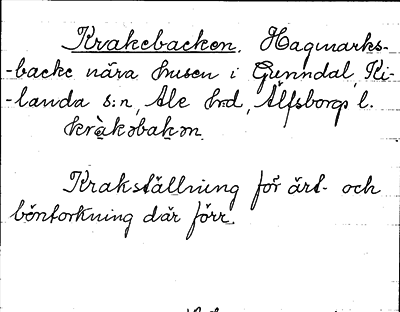 Krakebacken. Hagmarks-
-backe nära husen i Gunndal, Ki-
-landa s:n, Ale hrd, Älfsborgs l.
kràkəbakən

Krakställning för ärt- och
böntorkning där förr.